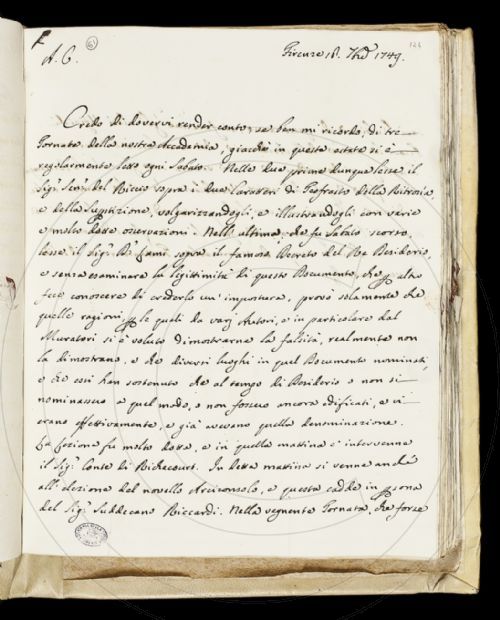 6
124
A. C.
Firenze 18. 7bre 1749.
Credo di dovervi render conto, se ben mi ricordo, di tre
Tornate della nostra Accademia, giacchè in questa estate si è
regolarmente letto ogni Sabato. Nelle due prime dunque lesse il
Sigr. Senr. del Riccio sopra i due Caratteri di Teofrasto della Ritrosia,
e della Suptizione, volgarizzandogli, e illustrandogli con varie
e molto dotte osservazioni. Nell' ultima, che fu Sabato scorso,
lesse il Sigr. Dr. Lami sopra il famoso Decreto del Re Desiderio,
e senza esaminare la legittimità di questo Documento, che p altro
fece conoscere di crederlo un' impostura, provò solamente che
quelle ragioni, p le quali da varj Autori, e in particolare dal
Muratori si è voluto dimostrarne la falsità, realmente non
la dimostrano, e che diversi luoghi in quel Documento nominati,
e che essi han sostenuto che al tempo di Desiderio o non si
nominassero a quel modo, o non fossero ancora edificati, e vi
erano effettivamente, e già avevano quella denominazione.
La Lezione fu molto dotta, e in quella mattina c' intervenne
il Sigr. Conte di Richecourt. In detta mattina si venne anche
all' elezione del novello Arciconsolo, e questa cadde in psona
del Sigr. Suddecano Riccardi. Nella vegnente Tornata, che forse